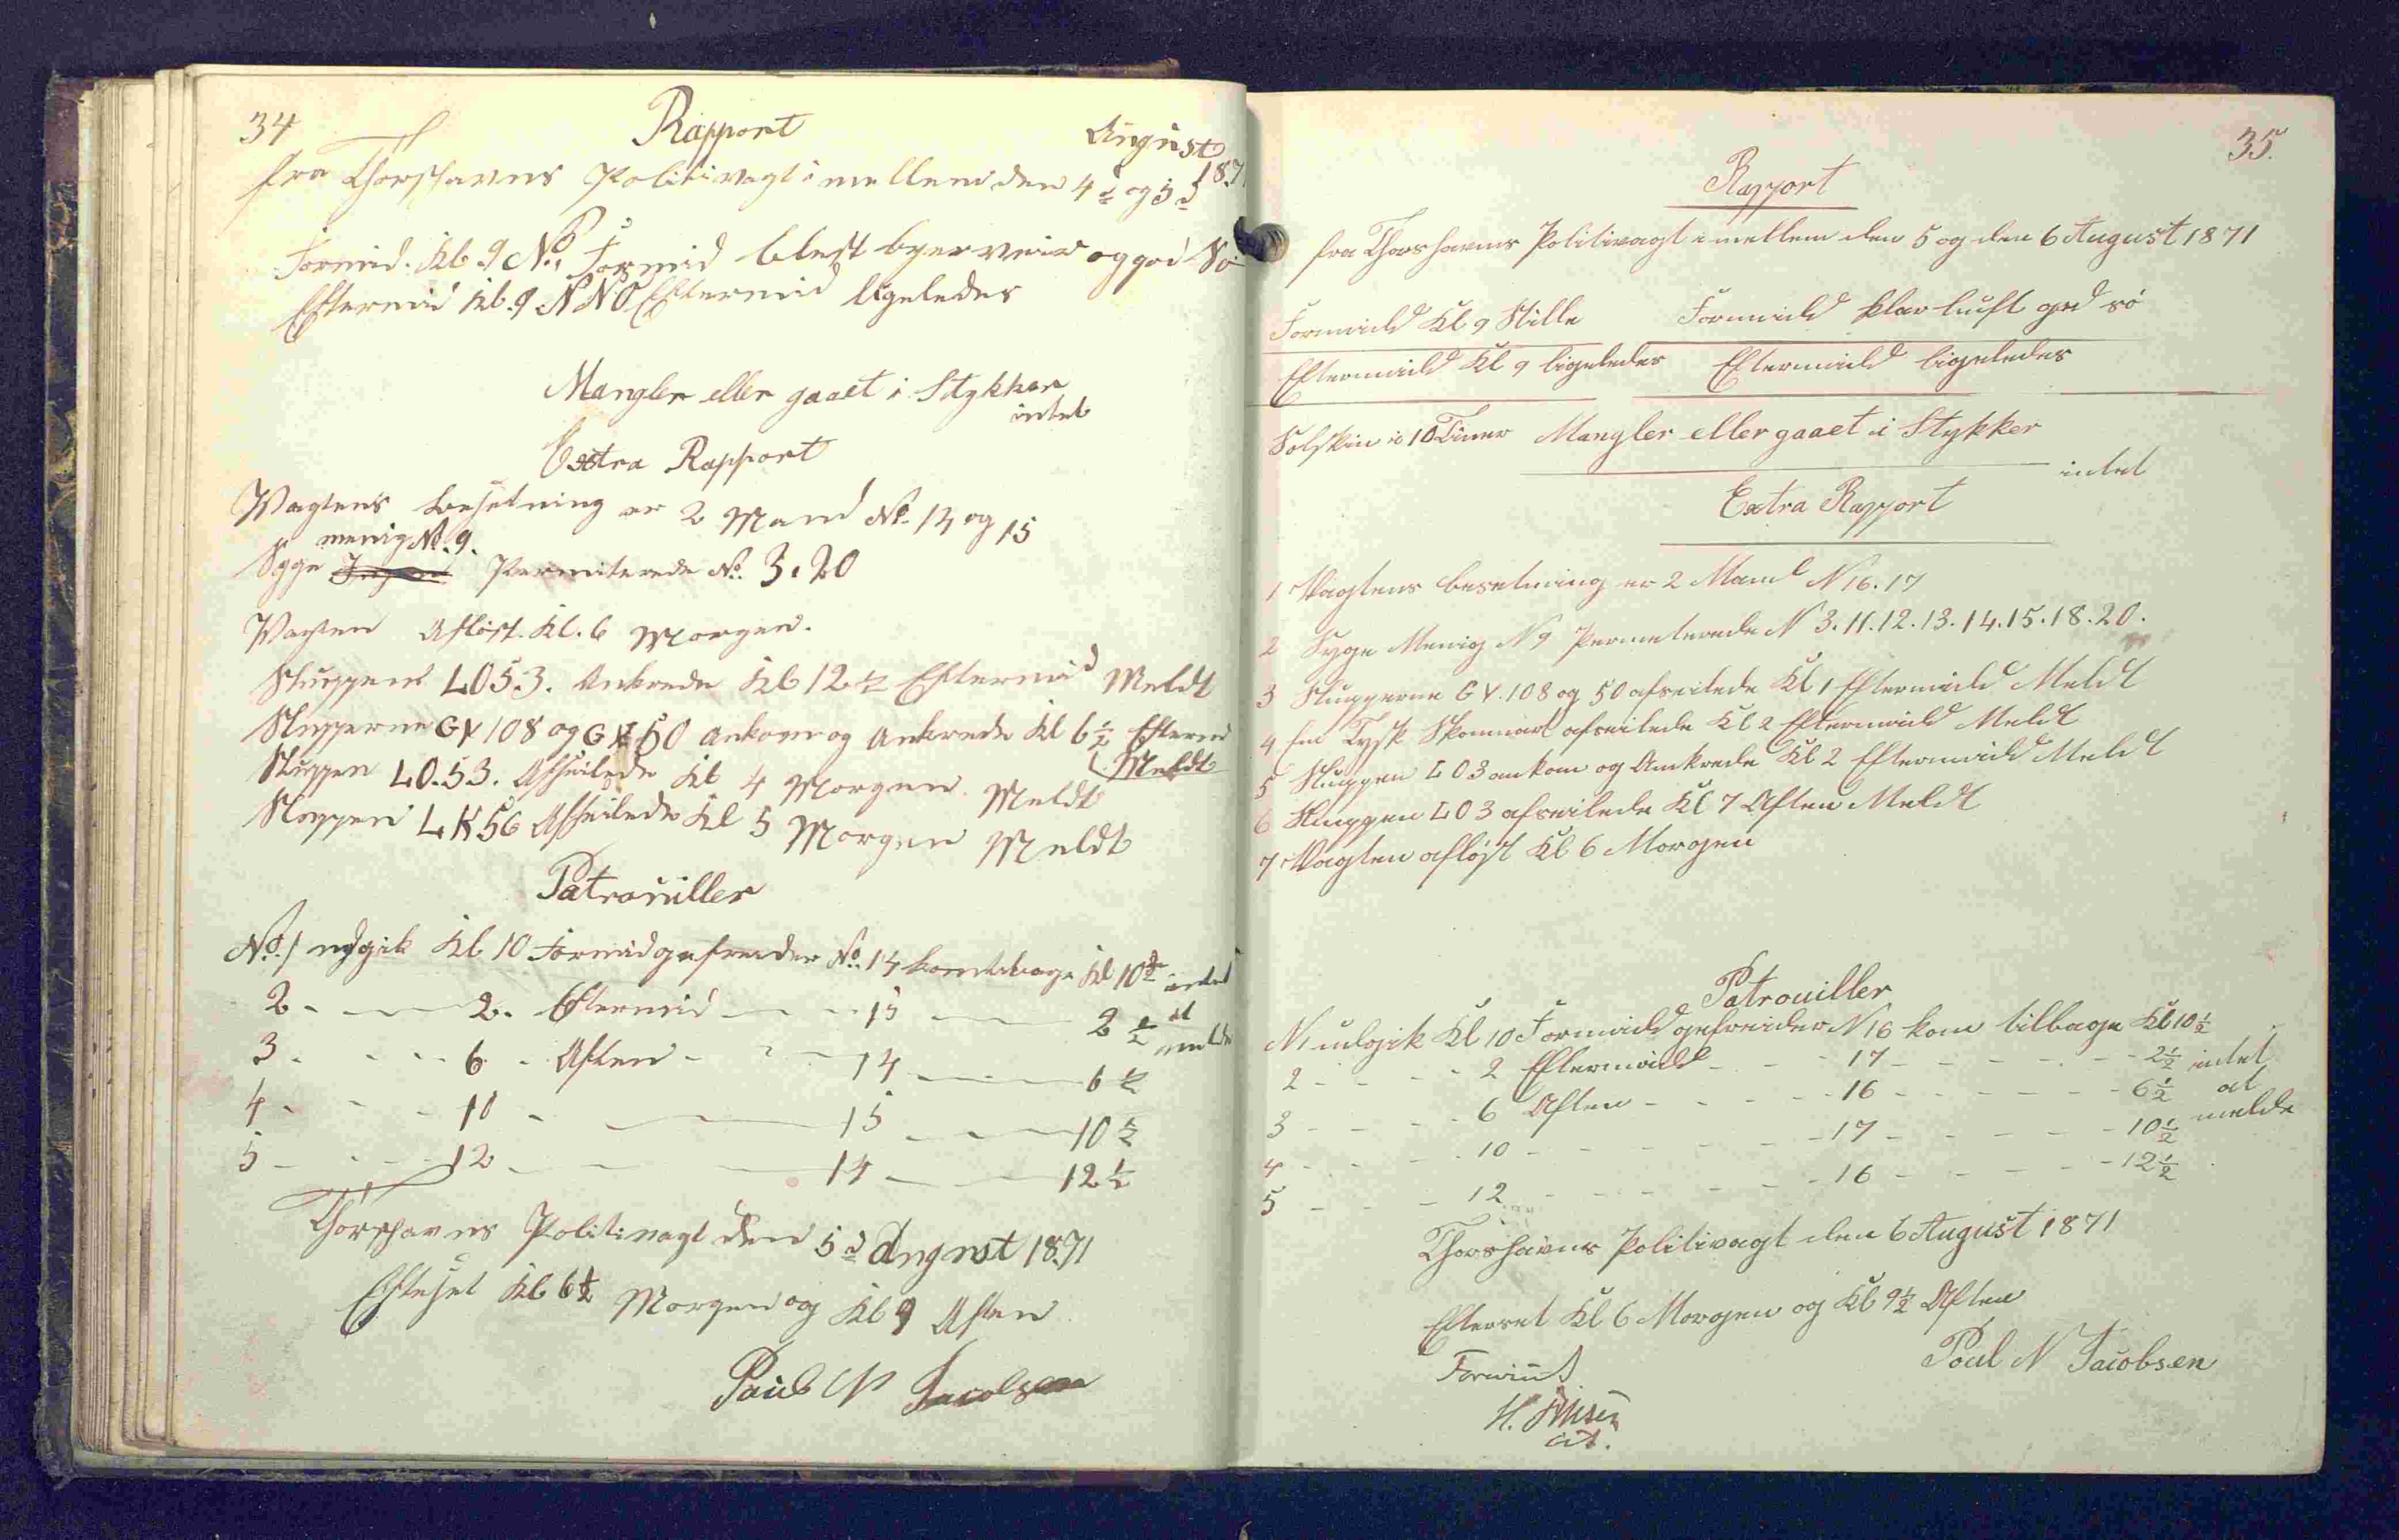 34
Rapport
August
1871
fra Thorshavns Politivagt i mellem den 4d og 5d
Formid. Kl. 9 No. Formid blest byer veir og god Sö
Eftermid Kl. 9 NNO Eftermid ligeledes
Mangler eller gaaet i Stykker
intet
Extra Rapport
Vagtens besetning er 2 Mand No. 14 og 15
menig No. 9.
Syge Permiterede No. 3. 20
Vagten Aflöst. Kl. 6 Morgen.
Sluppen LO53. Ankrede Kl 12 1/2 Eftermid Meldt
Slupperne GV 108 og GV 50 ankom og Ankrede Kl 6 1/2 Eftermd
Meldt
Sluppen LO.53. Afseilede Kl 4 Morgen. Meldt
Sluppen LK56 Afseilede Kl 5 Morgen Meldt
Patrouiller
No. 1 udgik Kl 10 Formid gefreider No. 14 kom tilbage Kl 10 1/2 intet
2 - - 2 - Eftermid - - 15 - - 2 1/2 at
3 - - 6 - Aften - - 14 - - 6 1/2 melde
4 - - 10 - - 15 - - 10 1/2
5 - - 12 - - 14 - - 12 1/2
Thorshavns Politivagt den 5d August 1871
Efteset Kl 6 1/2 Morgen og Kl 9 Aften
Poul N Jacobsen
35.
Rapport
fra Thorshavns Politivagt i mellem den 5 og den 6 August 1871
Formidd Kl 9 Stille Formidd klar luft god sö
Eftermidd Kl 9 ligeledes Eftermidd ligeledes
Solskin i 10 Timer Mangler eller gaaet i Stykker
intet
Extra Rapport
1 Vagtens besetning er 2 Mand N 16. 17
2 Syge Menig N 9 Permeterede N 3. 11. 12. 13. 14. 15. 18. 20.
3 Slupperne GV. 108 og 50 afseilede Kl 1 Eftermidd Meldt
4 En Tysk Skonnart afseilede Kl 2 Eftermidd Meldt
5 Sluppen LO3 ankom og Ankrede Kl 2 Eftermidd Meldt
6 Sluppen LO3 afseilede Kl 7 Aften Meldt
7 Vagten aflöst Kl 6 Morgen
Patrouiller
N1 udgik Kl 10 Formidd gefreider N 16 kom tilbage Kl 10 1/2
2 - - - - 2 Eftermidd - - 17 - - - - - 2 1/2 intet
3 - - - - 6 Aften - - - - 16 - - - - - 6 1/2 at
4 - - - - 10 - - - - - - 17 - - - - - 10 1/2 melde
5 - - - 12 - - - - - - 16 - - - - - 12 1/2
Thorshavns Politivagt den 6 August 1871
Efterset Kl 6 Morgen og Kl 9 1/2 Aften
Poul N Jacobsen
H.